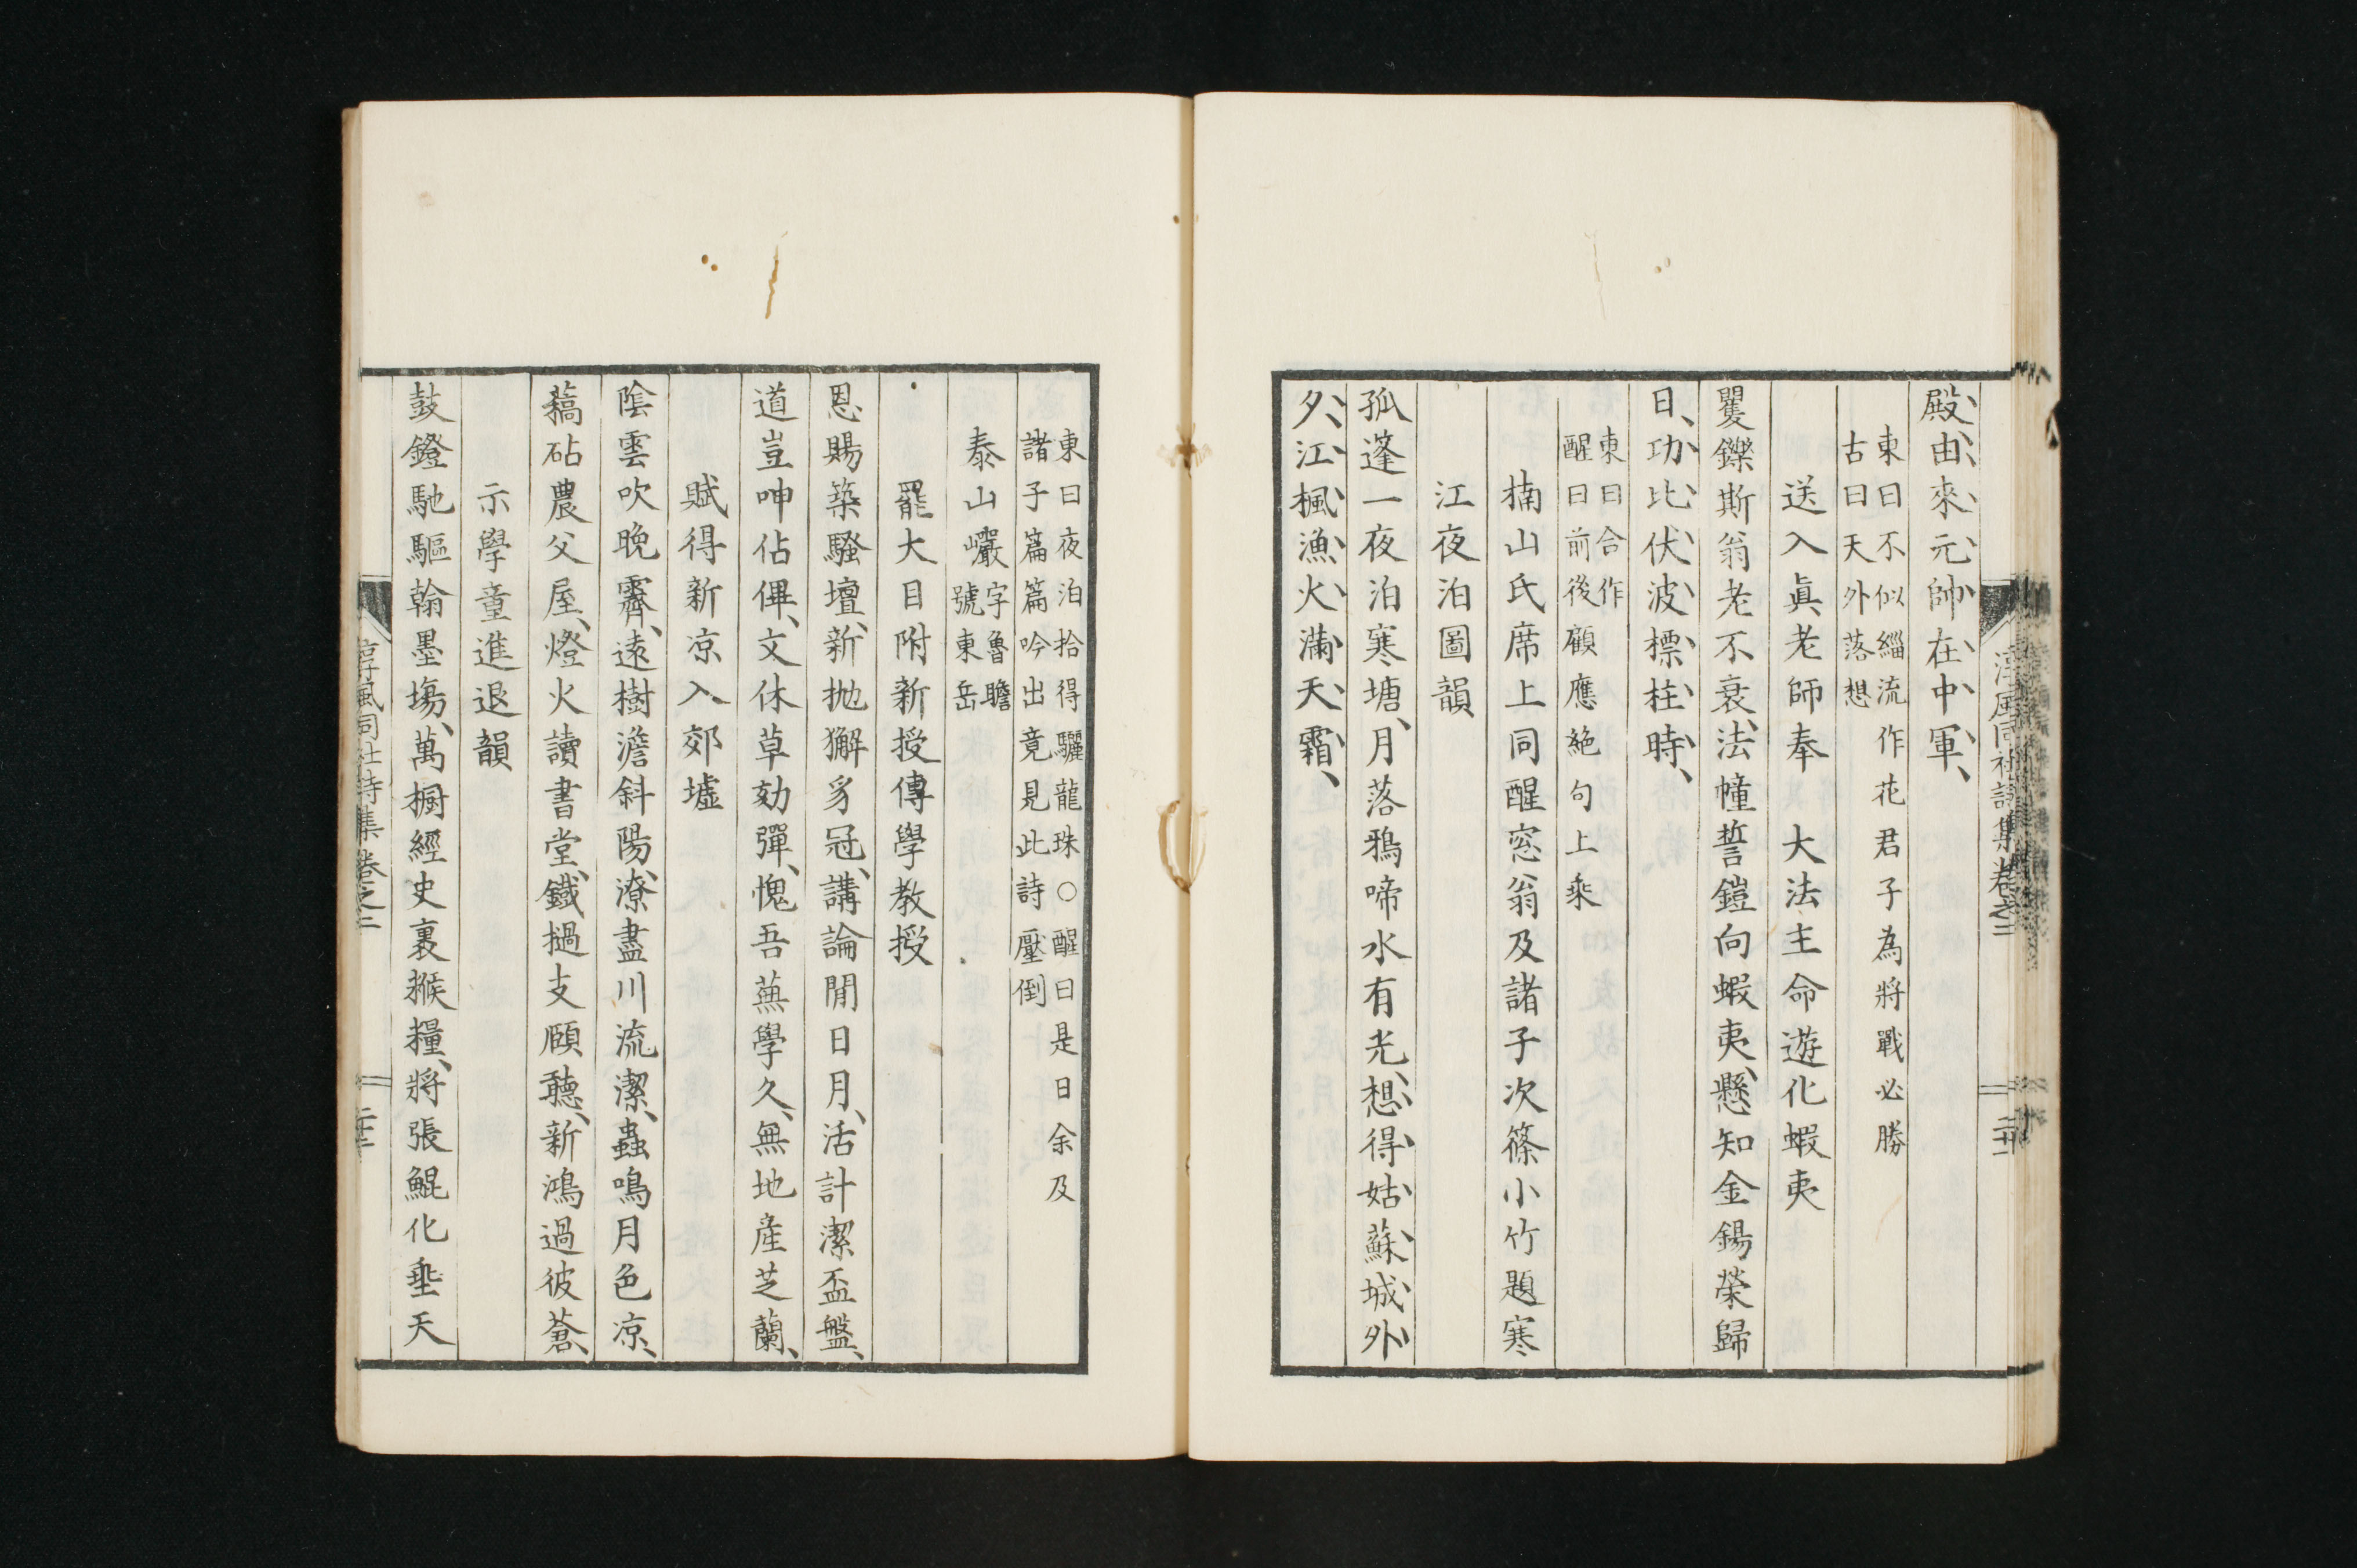 殿、由、來、元、帥、在、中、軍、
東曰不似緇流作花君子為將戰必勝
古曰天外落想
送入眞老師奉 大法主命遊化蝦夷
矍鑠斯翁老不衰、法幢誓鎧向蝦夷、懸知金錫榮歸
日、功、比、伏、波、標、柱、時、
東曰合作
醒曰前後顧應絶句上乘
楠山氏席上同醒窓翁及諸子次篠小竹題寒
江夜泊圖韻
孤蓬一夜泊寒塘、月落鴉啼水有光、想、得、姑、蘇、城、外、
夕、江、楓、漁、火、滿、天、霜、
淳風同社詩集卷之二
東曰夜泊拾得驪龍珠○醒曰是日余及
諸子篇篇吟出竟見此詩壓倒
泰山巖 字魯瞻
號東岳
罷大目附新授傳學教授
恩賜築騷壇、新抛獬豸冠、講論閒日月、活計潔盃盤、
道豈呻佔俾、文休草劾彈、愧吾蕪學久、無地産芝蘭、
賦得新凉入郊墟
陰雲吹晚霽、遠樹澹斜陽、潦盡川流潔、蟲鳴月色凉、
藁砧農父屋、燈火讀書堂、鐵撾支頤聽、新鴻過彼蒼、
示學童進退韻
鼓鐙馳驅翰墨塲、萬櫥經史裹糇糧、將張鯤化垂天
淳風同社詩集卷之二